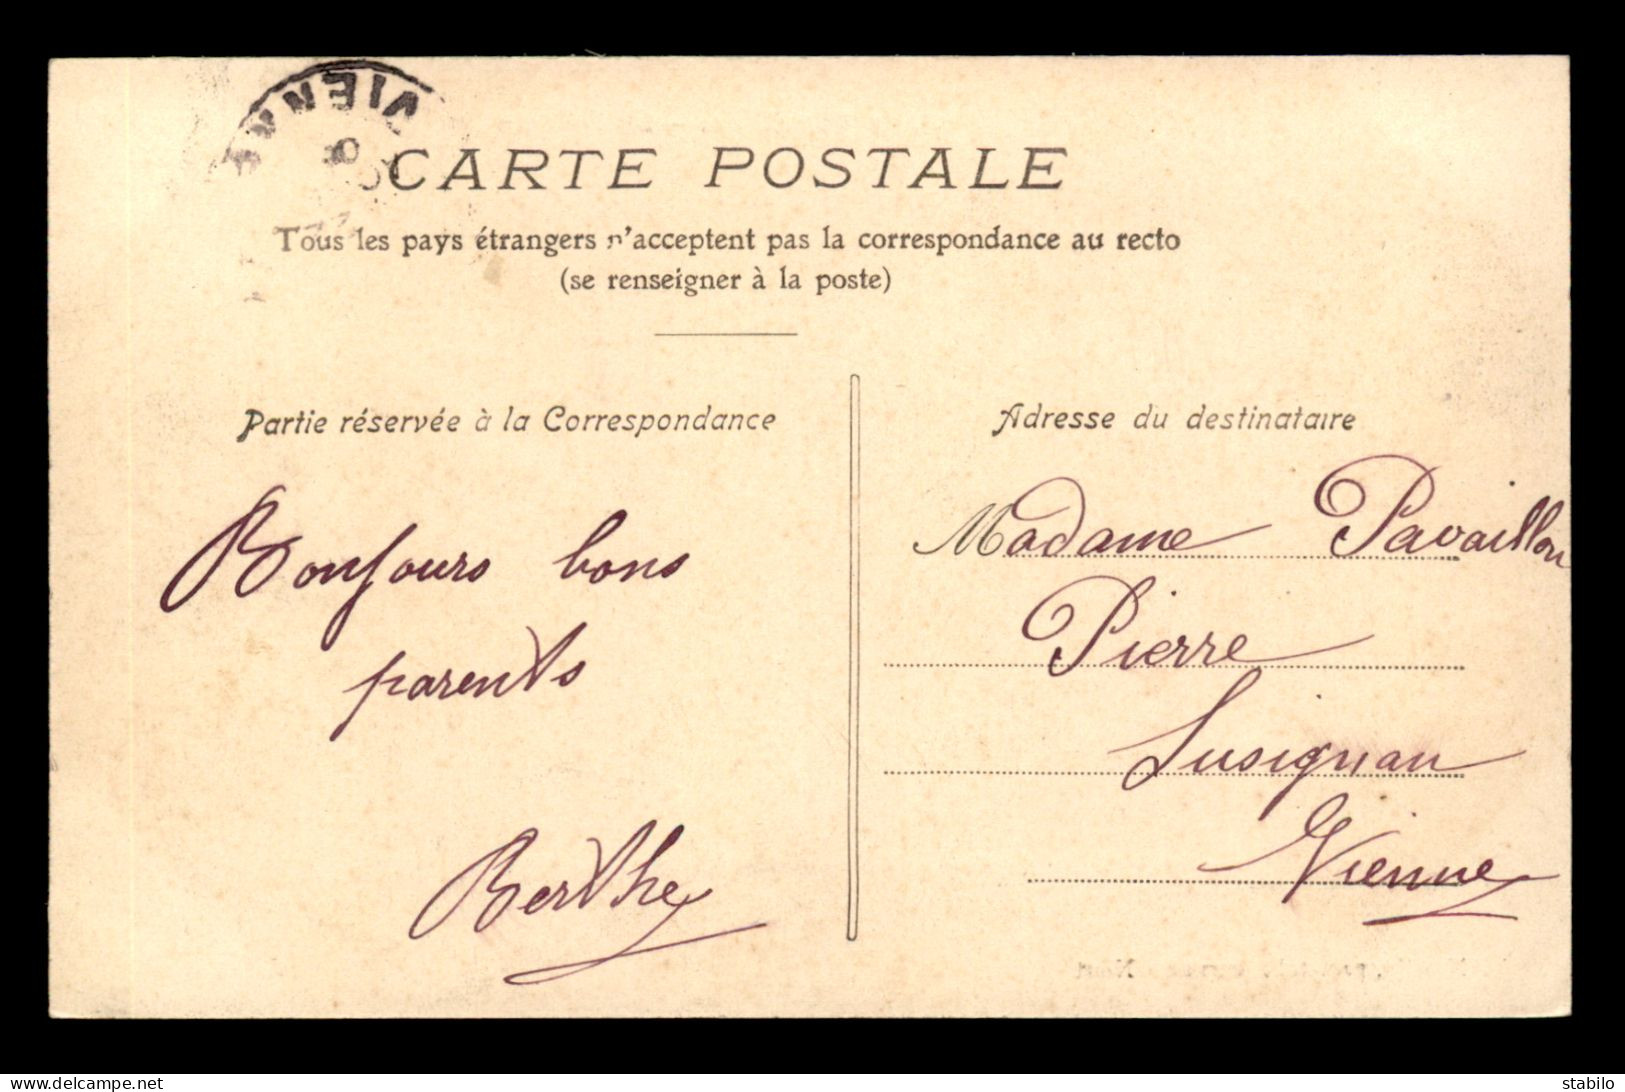 VIENNE
CARTE POSTALE
Tous les pays étrangers n'acceptent pas la correspondance au recto
(se renseigner à la poste)
Partie réservée à la Correspondance
Bonjours bons
parents
Berthe
Adresse du destinataire
Madame Pavaillon
Pierre
Lusignan
Vienne
delcampe.net
stabilo